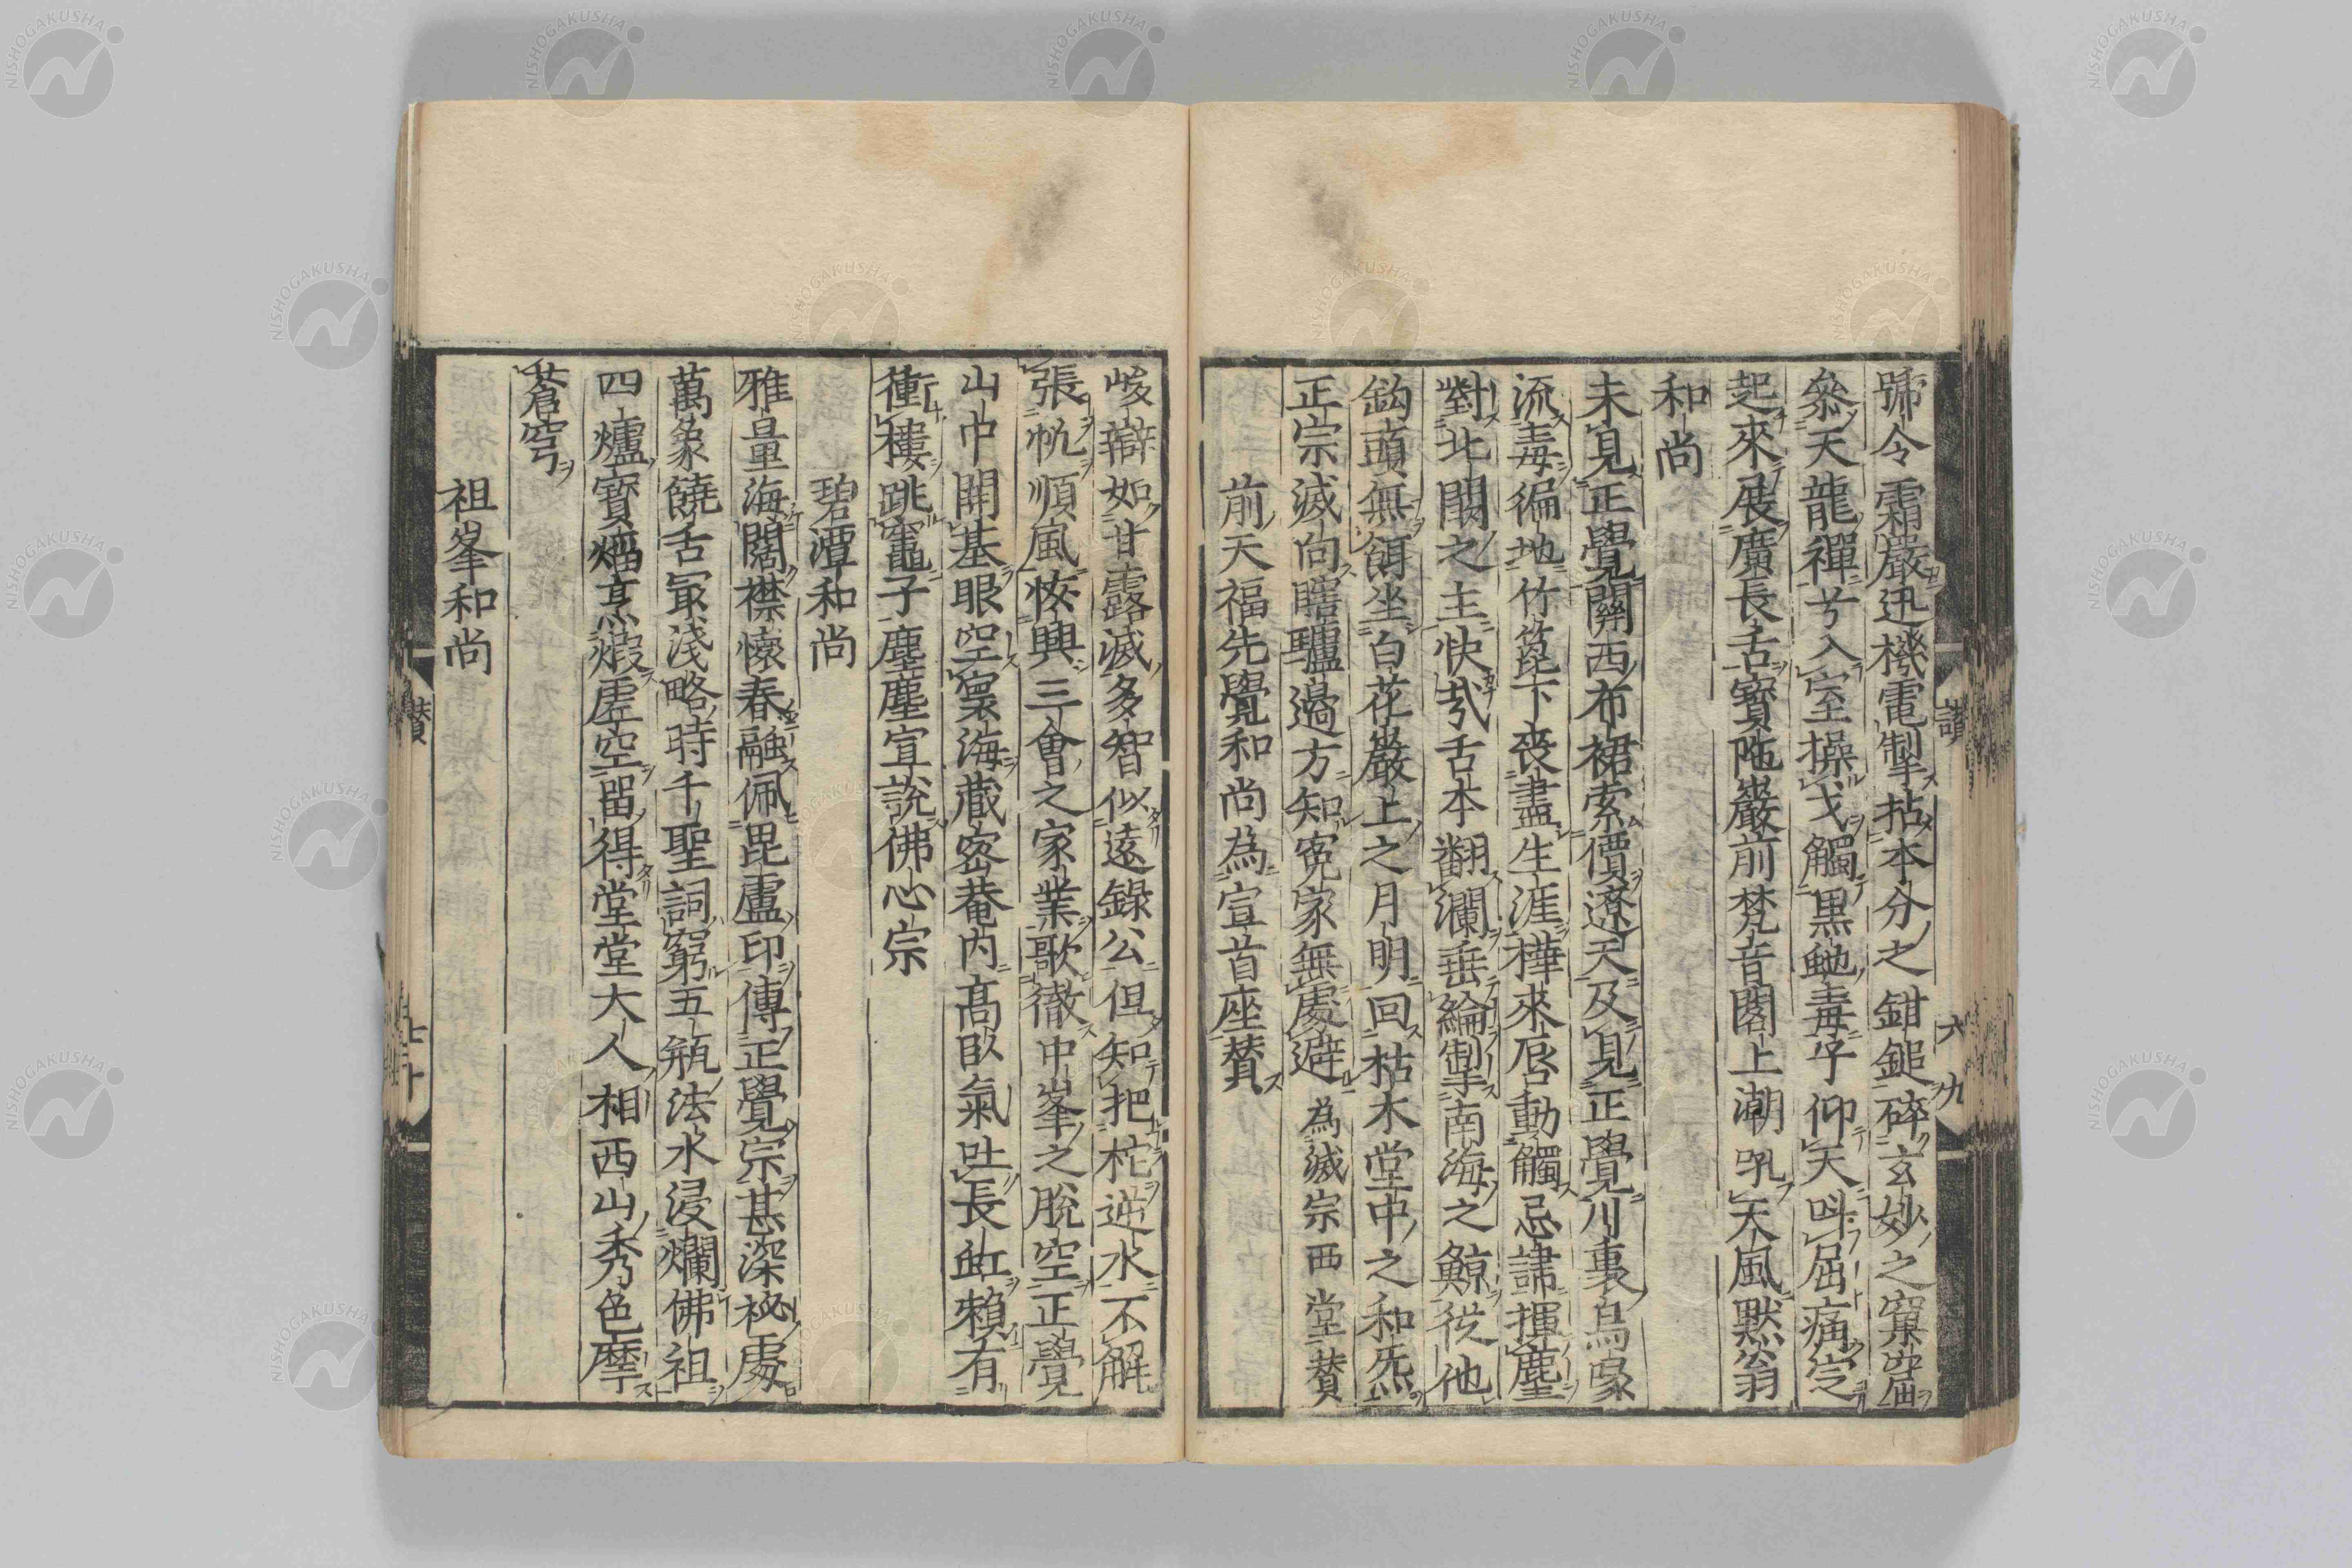 號令霜嚴迅機電掣拈本分之鉗鎚碎玄妙之窠窟
叅天龍禪兮入室操戈觸黒虵毒乎仰天呌屈痛定
起來展廣長舌寳陁巖前梵音閣上潮吼天風默翁
和尚
未見正覺關西布裙索價遼天及見正覺川裏烏喙
流毒徧地竹篦下喪盡生涯禪來唇動觸忌諱揮麈
對北闕之主快㢤舌本翻瀾垂綸掣南海之鯨從他
鈎頭無餌坐白花巖上之月明回枯木堂中之和炁
正宗滅向瞎驢邉方知寃家無處避 為滅宗西堂賛
前天福先覺和尚為宣首座賛
讃
六九
峻辯如甘露滅多智似遠錄公但知把柁逆水不解
張帆順風恢興三會之家業歌徹中峯之脫空正覺
山中開基眼空寰海藏密菴内髙臥氣吐長虹賴有
衝樓跳竈子塵塵宣説佛心宗
碧潭和尚
雅量海闊襟懷春融佩毘盧印傳正覺宗甚深祕處
萬象饒舌㝡淺略時千聖詞窮五瓶法水浸爛佛祖
四爐寳熖烹煅虚空畱得堂堂大人相西山秀色摩
蒼穹
祖峯和尚
賛
七十
NISHOGAKUSHA